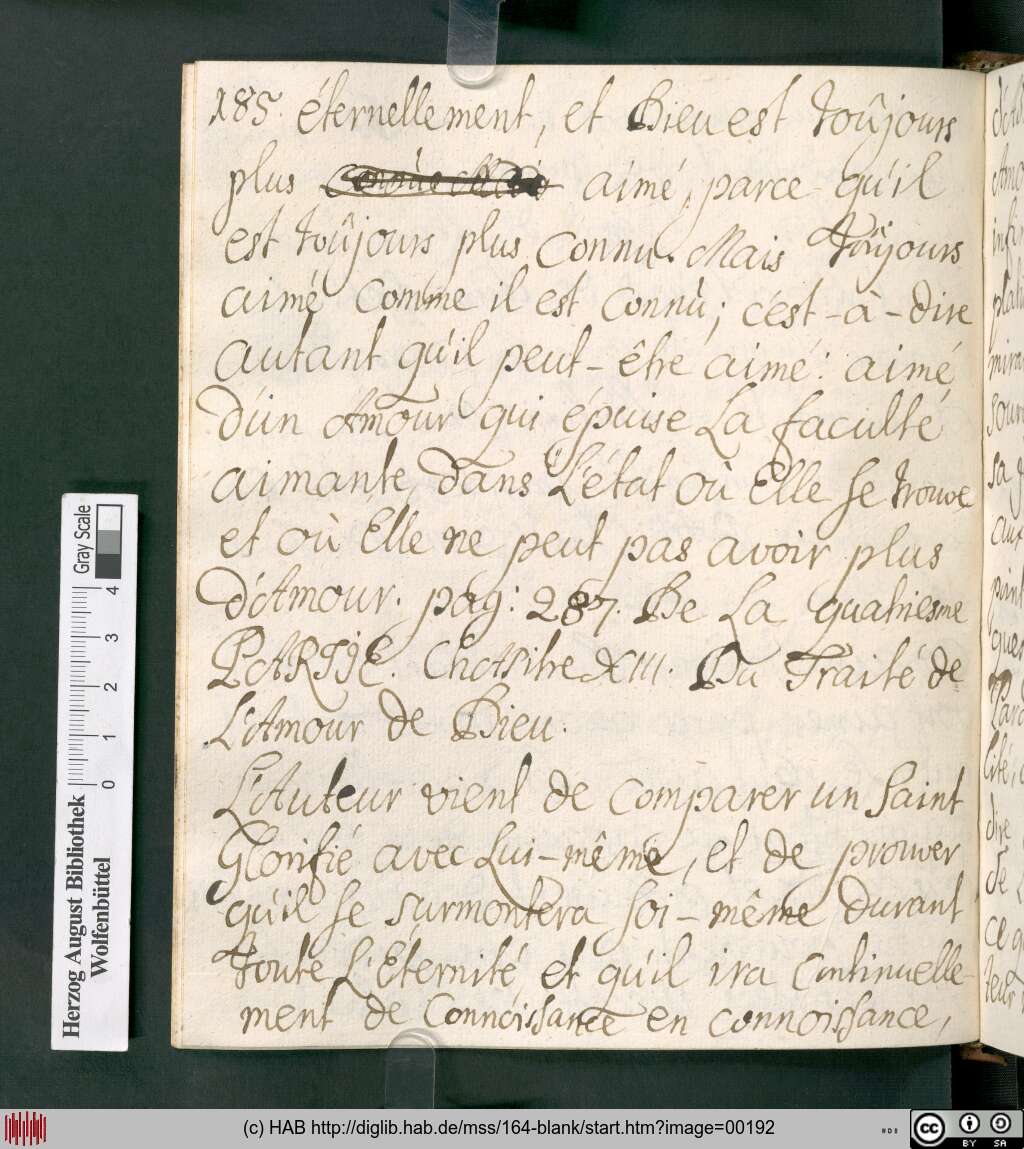 185. éternellement, et Dieu est toûjours
plus aimé, parce-qu'il
est toûjours plus connu. Mais toûjours
aimé comme il est connû; c'est-à-dire
autant qu'il peut-être aimé: aimé
d'ùn Amour qui épuise La faculté
aimante, dans L'état où Elle se trouve
et où Elle ne peut pas avoir plus
d'Amour. pag: 287. De La quatriesme
PARTIE. Chapitre XIII. Du Traité de
L'Amour de Dieu.
L'Auteur vient de comparer un Saint
Glorifié avec Lui-même, et de prouver
qu'il se surmontera soi-même durant
toute L'Eternité, et qu'il ira continuelle-
ment de Connoissance en connoissance,
Gray Scale
4 3 2 1 0
Herzog August Bibliothek
Wolfenbüttel
(c) HAB http://diglib.hab.de/mss/164-blank/start.htm?image=00192
cc BY SA